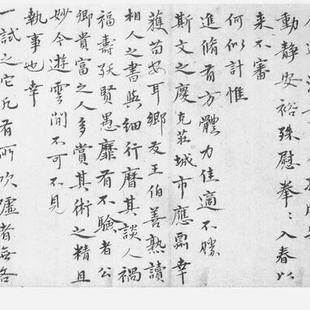 動靜安裕殊慰拳〻入春以
来不審
何似計惟
進脩有方體力佳適不勝
斯文之慶克莊城市應酬幸
蕉苟安耳鄉友王伯善熟讀
相人之書與細行曆其談人禍
福壽殀賢愚靡有不驗者公
卿貴富之人多賞其術之精且
妙今遊雲間不可不見
執事也幸
一試之它凡有所吹噓者每各